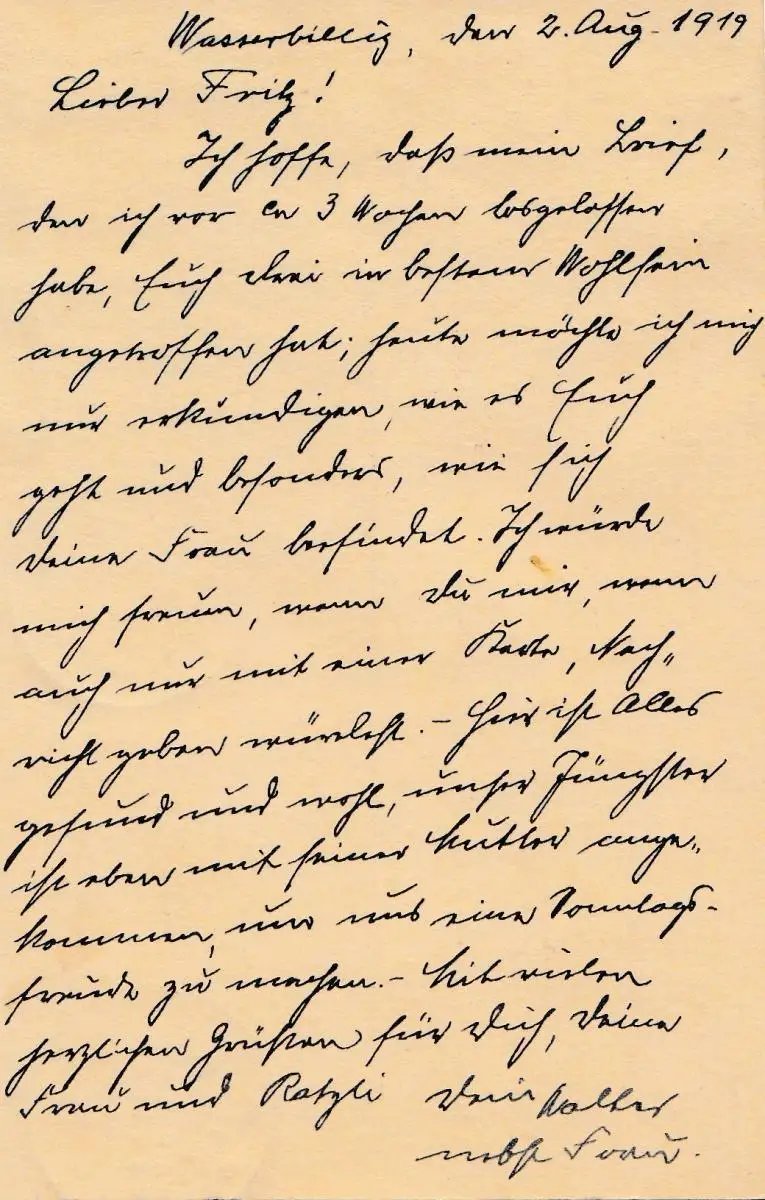 Wasserbillig, den 2. Aug. 1919
Lieber Fritz!
Ich hoffe, daß mein Brief,
den ich vor ca 3 Wochen losgelassen
habe, Euch drei in bestem Wohlsein
angetroffen hat; heute möchte ich mich
nur erkundigen, wie es Euch
geht und besonders, wie sich
Deine Frau befindet. Ich würde
mich freuen, wenn Du mir, wenn
auch nur mit einer Karte, Nach„
richt geben würdest. – Hier ist Alles
gesund und wohl, unser Jüngster
ist eben mit seiner Mutter ange„
kommen, um uns eine Sonntags-
freude zu machen. – Mit vielen
herzlichen Grüßen für Dich, Deine
Frau und Ratzli Dein Walter
nebst Frau.